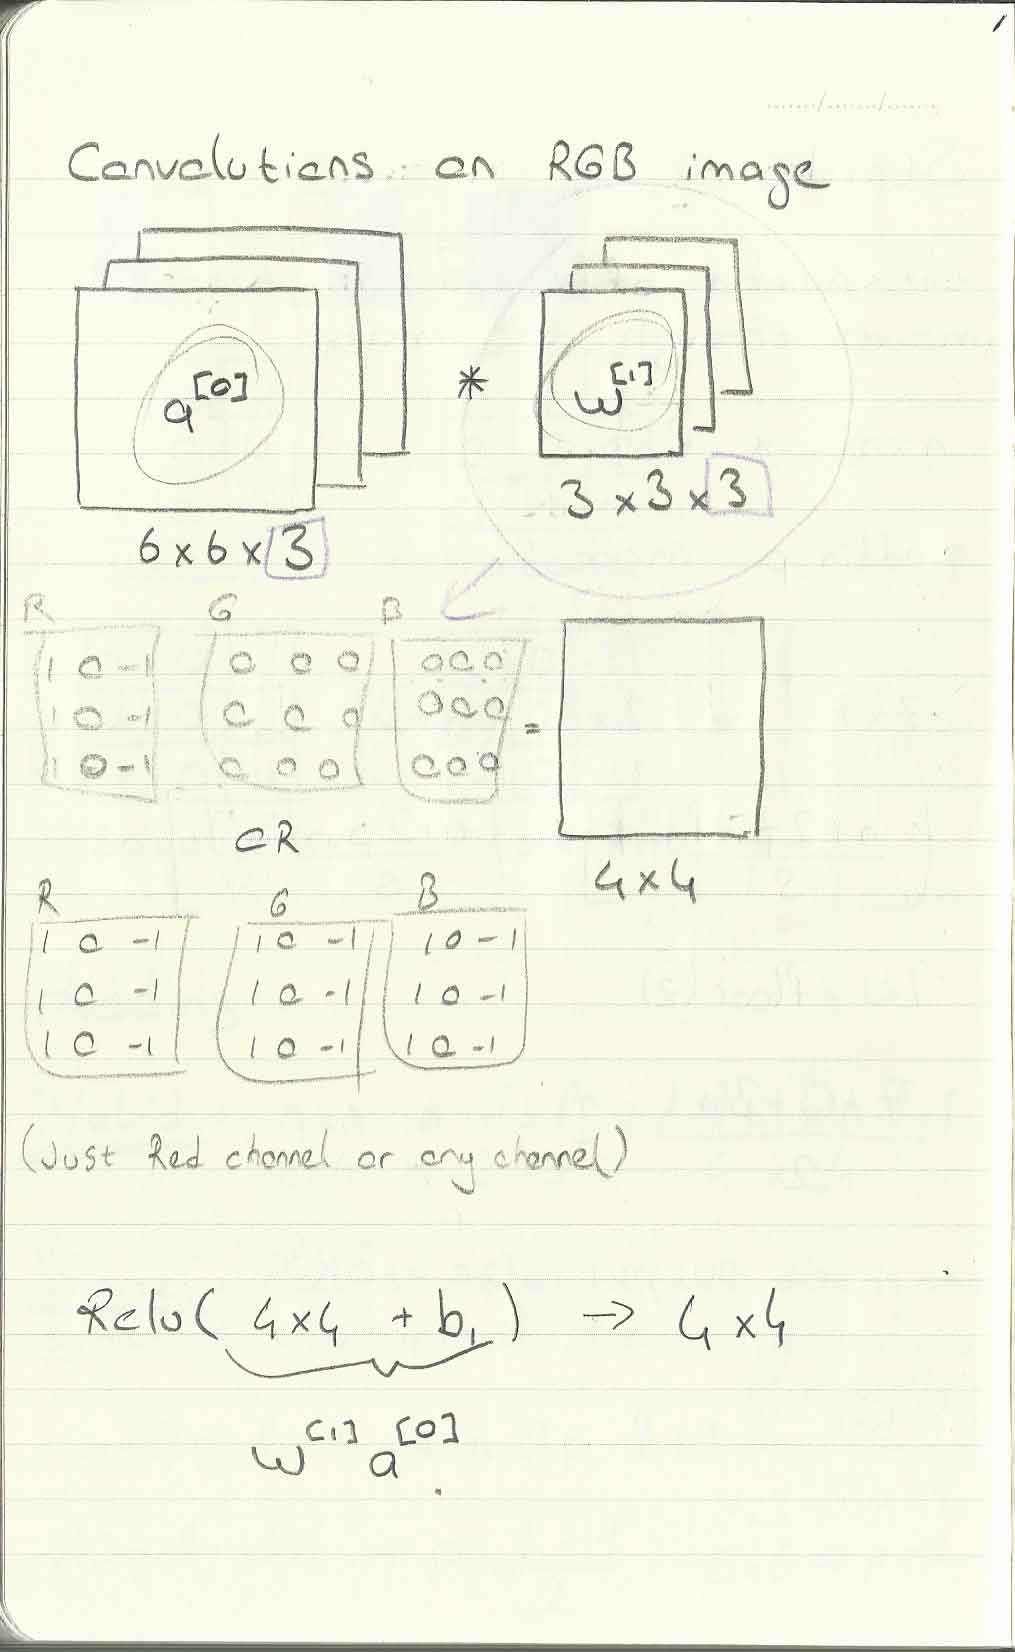 Convolutions on RGB image
a[0] * w[1]
3 x 3 x 3
6 x 6 x 3
R G B
1 0 -1 0 0 0 0 0 0
1 0 -1 0 0 0 0 0 0
1 0 -1 0 0 0 0 0 0
=
OR
4 x 4
R G B
1 0 -1 1 0 -1 1 0 -1
1 0 -1 1 0 -1 1 0 -1
1 0 -1 1 0 -1 1 0 -1
(Just Red channel or any channel)
Relu( 4x4 + b1 ) → 4 x 4
w[1] a[0]